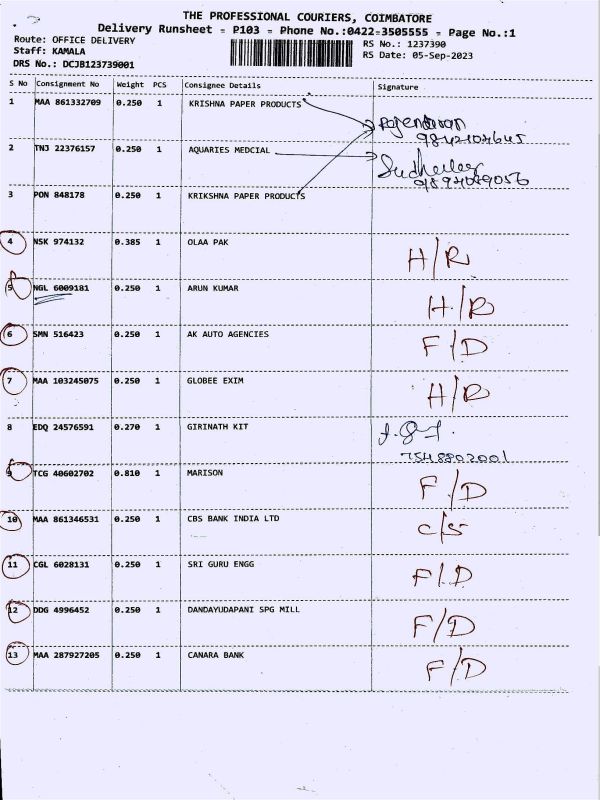 THE PROFESSIONAL COURIERS, COIMBATORE
Delivery Runsheet = P103 = Phone No.:0422-3505555 = Page No.:1
Route: OFFICE DELIVERY RS No.: 1237390
Staff: KAMALA RS Date: 05-Sep-2023
DRS No.: DCJB123739001
S No Consignment No Weight PCS Consignee Details Signature
1 MAA 861332709 0.250 1 KRISHNA PAPER PRODUCTS
2 TNJ 22376157 0.250 1 AQUARIES MEDCIAL
3 PON 848178 0.250 1 KRIKSHNA PAPER PRODUCTS
4 NSK 974132 0.385 1 OLAA PAK H/R
5 NGL 6009181 0.250 1 ARUN KUMAR H/R
6 SMN 516423 0.250 1 AK AUTO AGENCIES F/D
7 MAA 103245075 0.250 1 GLOBEE EXIM H/R
8 EDQ 24576591 0.270 1 GIRINATH KIT
7548802001
9 TCG 40602702 0.810 1 MARISON F/D
10 MAA 861346531 0.250 1 CBS BANK INDIA LTD C/S
11 CGL 6028131 0.250 1 SRI GURU ENGG F/D
12 DDG 4996452 0.250 1 DANDAYUDAPANI SPG MILL F/D
13 MAA 287927205 0.250 1 CANARA BANK F/D